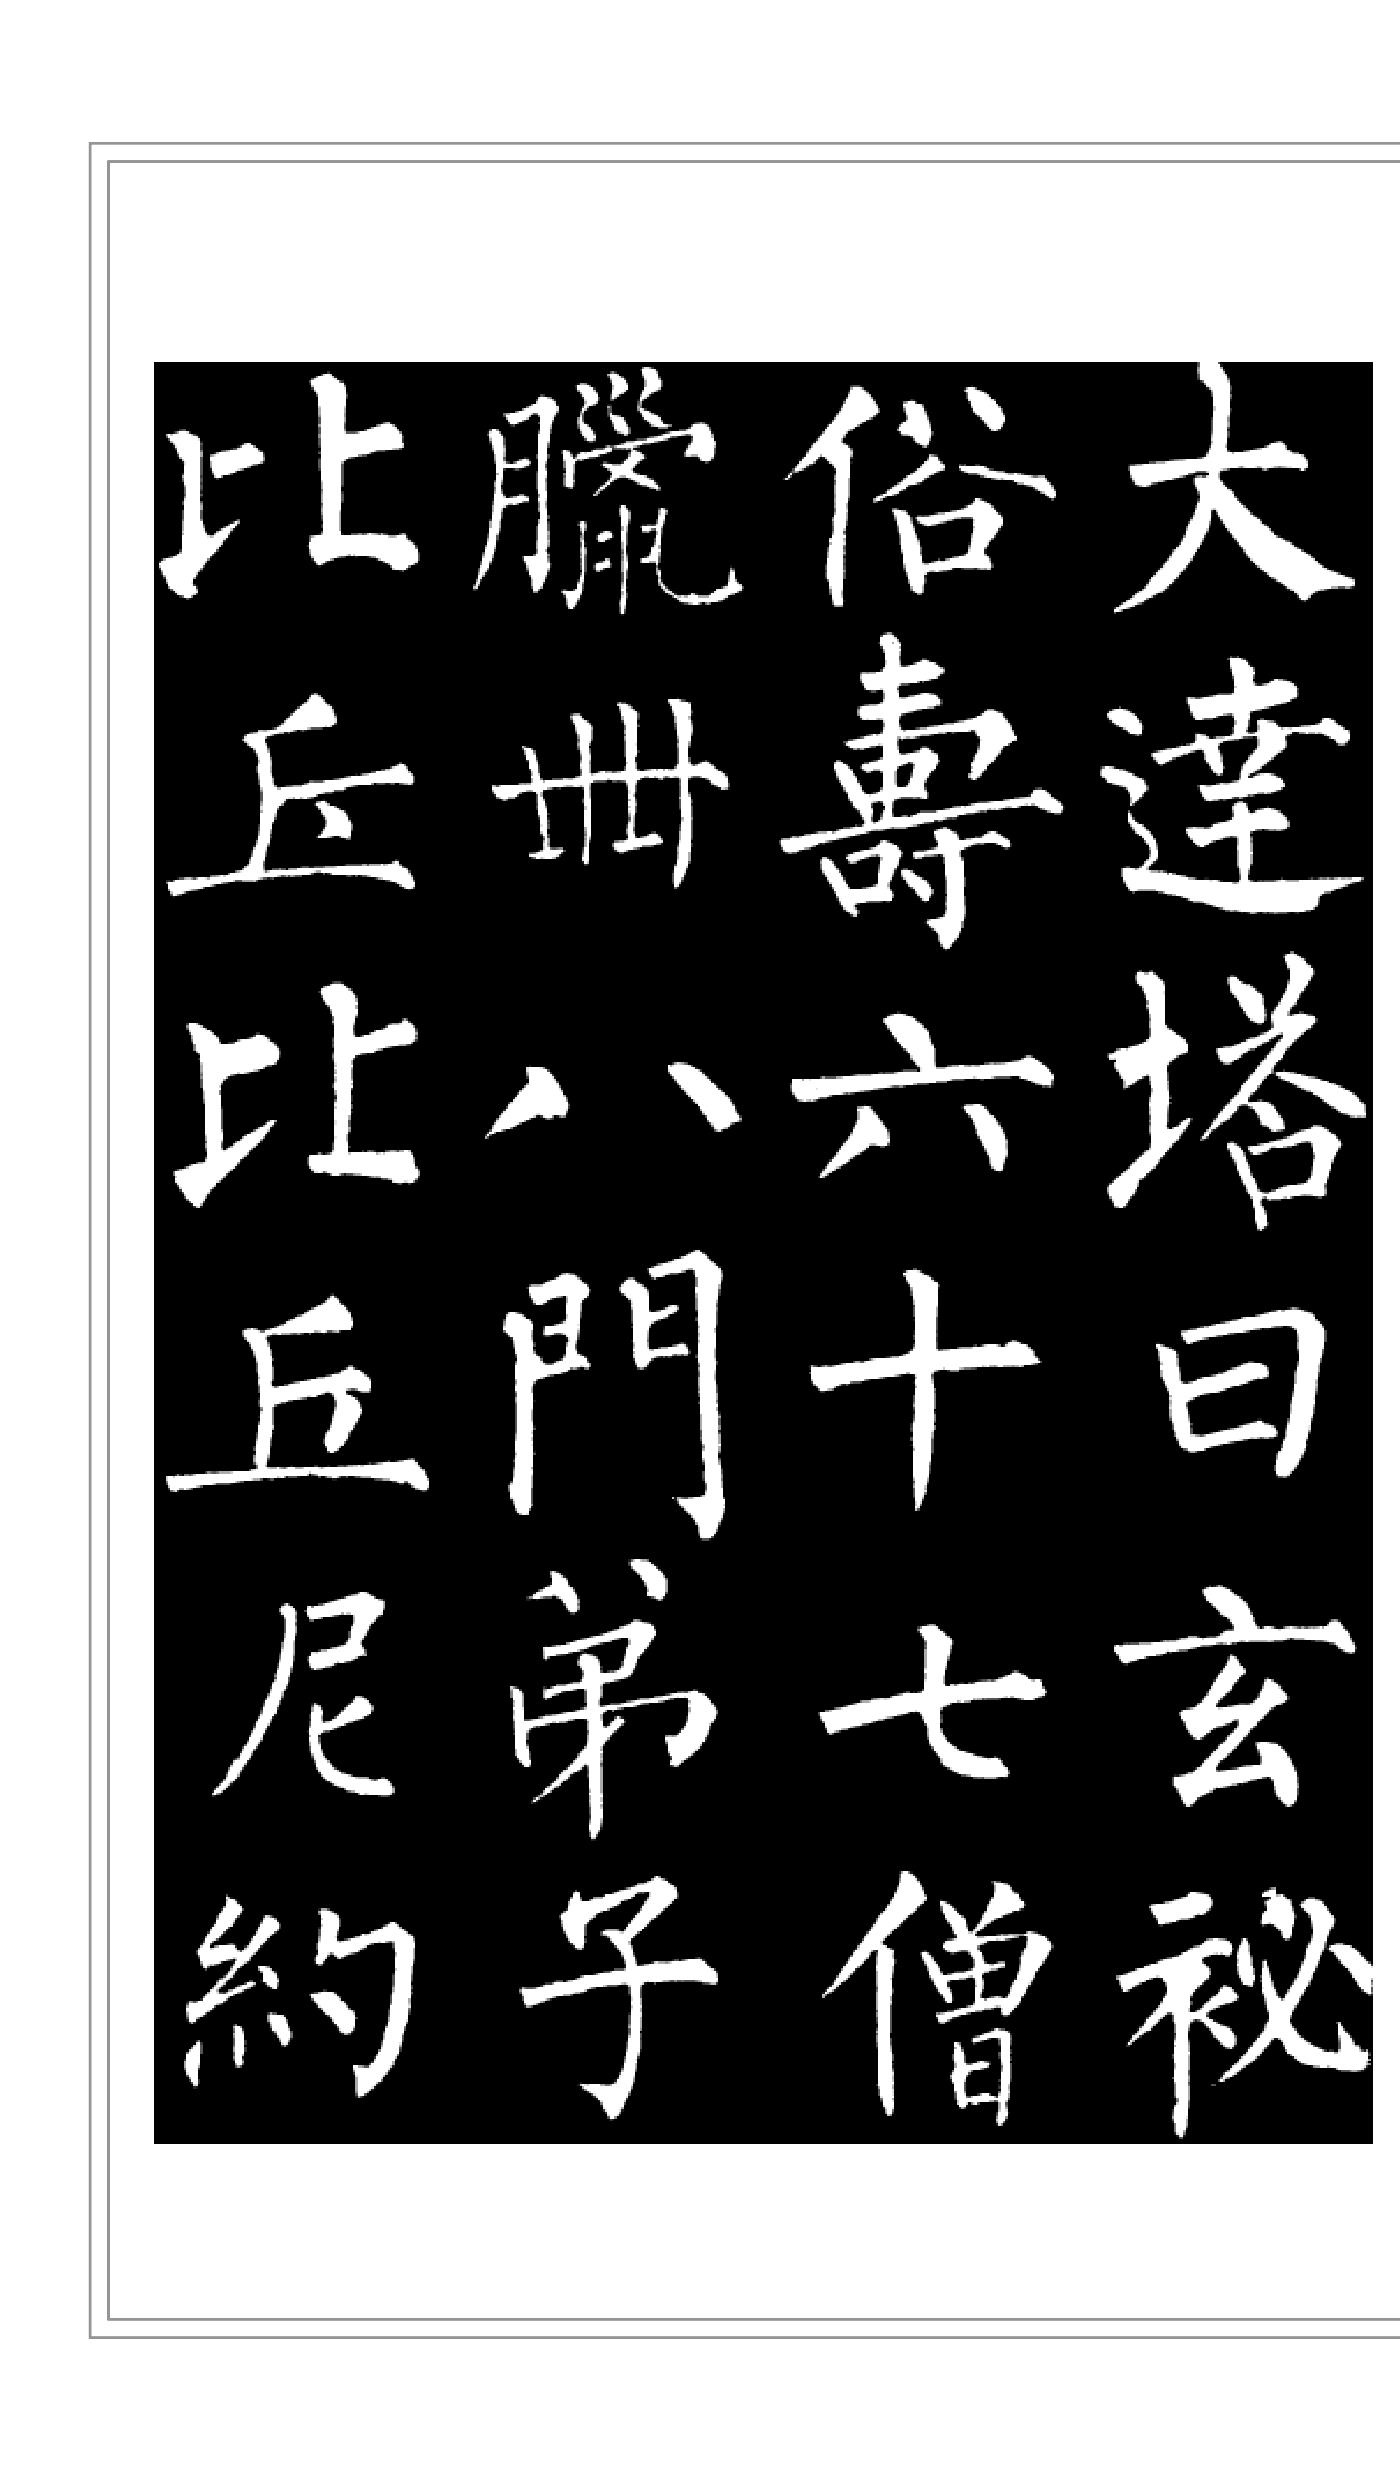 大達塔曰玄祕
俗壽六十七僧
臘卌八門弟子
比丘比丘尼約